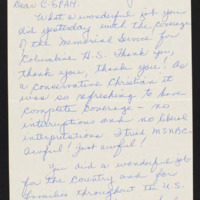 Dear C-SPAN
What a wonderful job you
did yesterday with the coverage
of the Memorial Service for
Columbine H.S. Thank you,
thank you, thank you! As a
conservative Christian it
was so refreshing to have
complete coverage - no
interruptions and no liberal
interpretations. I tried MSNBC.
Awful! Just awful!
You did a wonderful job
for the country and for
families throughout the U.S.